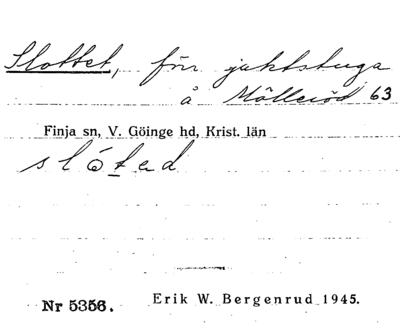 Slottet, förr jaktstuga
å Mölleröd 63
Finja sn, V. Göinge hd, Krist. län
slóted
Nr 5356. Erik W. Bergenrud 1945.